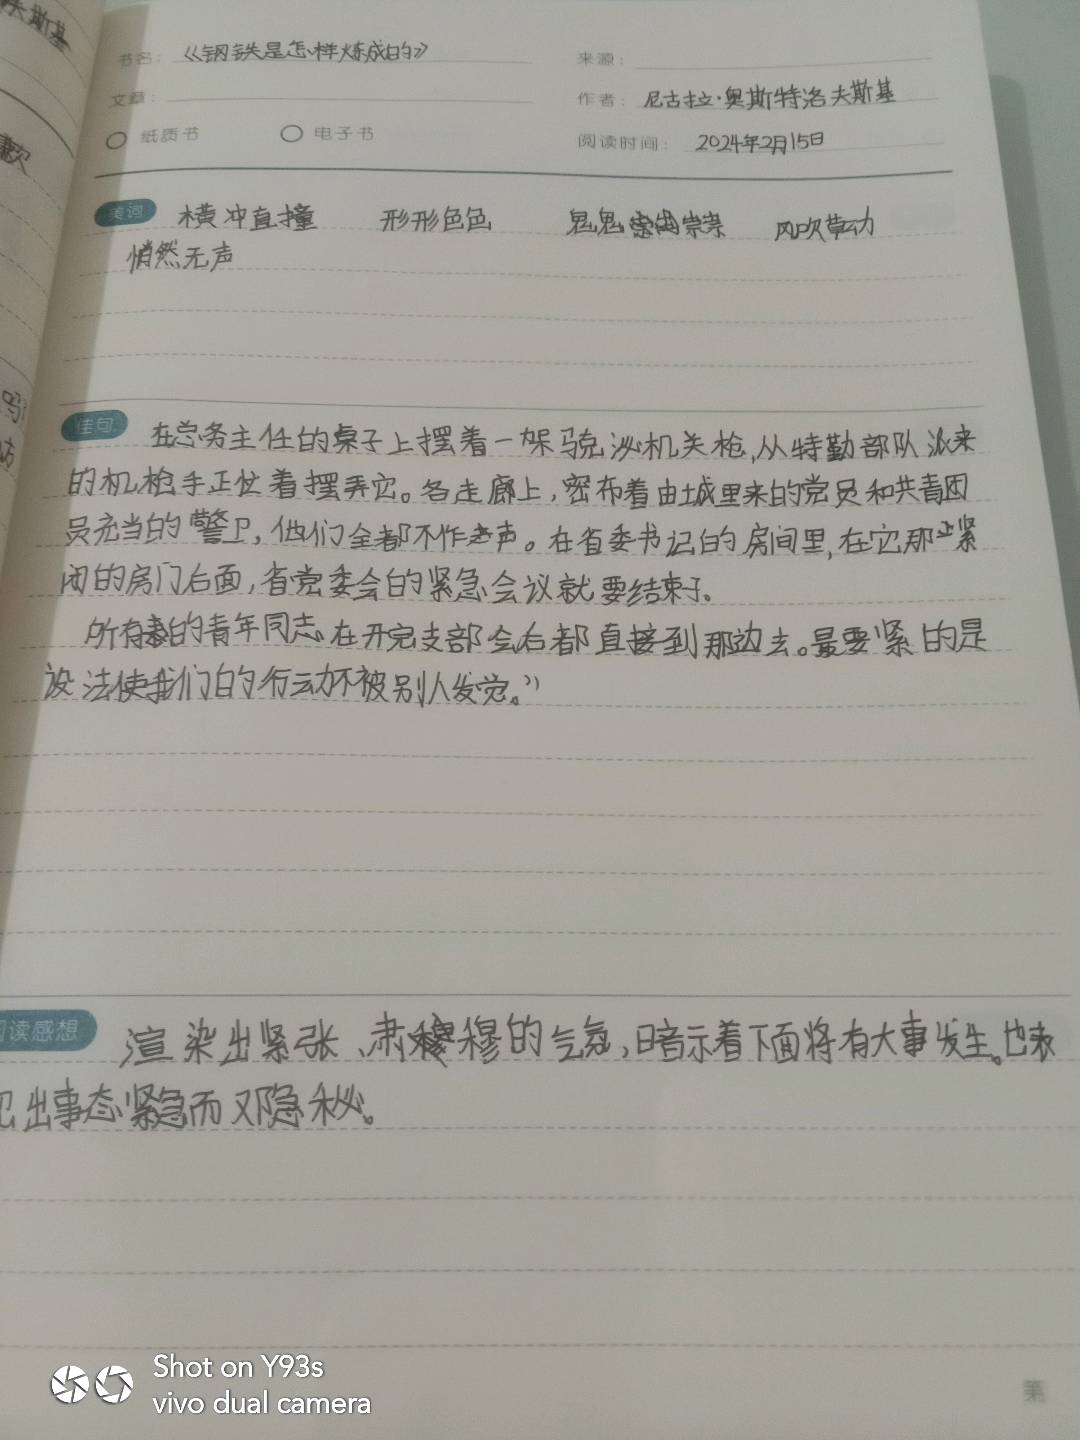 夫斯基
书名：《钢铁是怎样炼成的》
来源：
文章：
作者：尼古拉·奥斯特洛夫斯基
纸质书 电子书
阅读时间：2024年2月15日
美词 横冲直撞 形形色色 鬼鬼祟祟 风吹草动
悄然无声
佳句 在总务主任的桌子上摆着一架马克沁机关枪,从特勤部队派来
的机枪手正忙着摆弄它。各走廊上,密布着由城里来的党员和共青团
员充当的警卫,他们全都不作声。在省委书记的房间里,在它那紧
闭的房门后面,省党委会的紧急会议就要结束了。
所有的青年同志在开完支部会后都直接到那边去。最要紧的是
设法使我们的行动不被别人发觉。”
阅读感想 渲染出紧张、肃穆的气氛,暗示着下面将有大事发生。也表
现出事态紧急而又隐秘。
Shot on Y93s
vivo dual camera
第